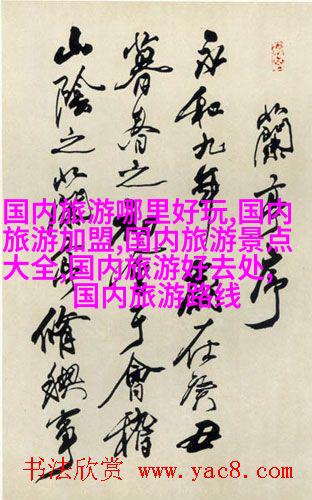 蘭亭序
永和九年歲在癸丑
暮春之初于會稽
山陰之蘭亭脩稧事
国内旅游哪里好玩,国内
旅游加盟,国内旅游景点
大全,国内旅游好去处,
国内旅游路线
书法欣赏 www.yac8.com